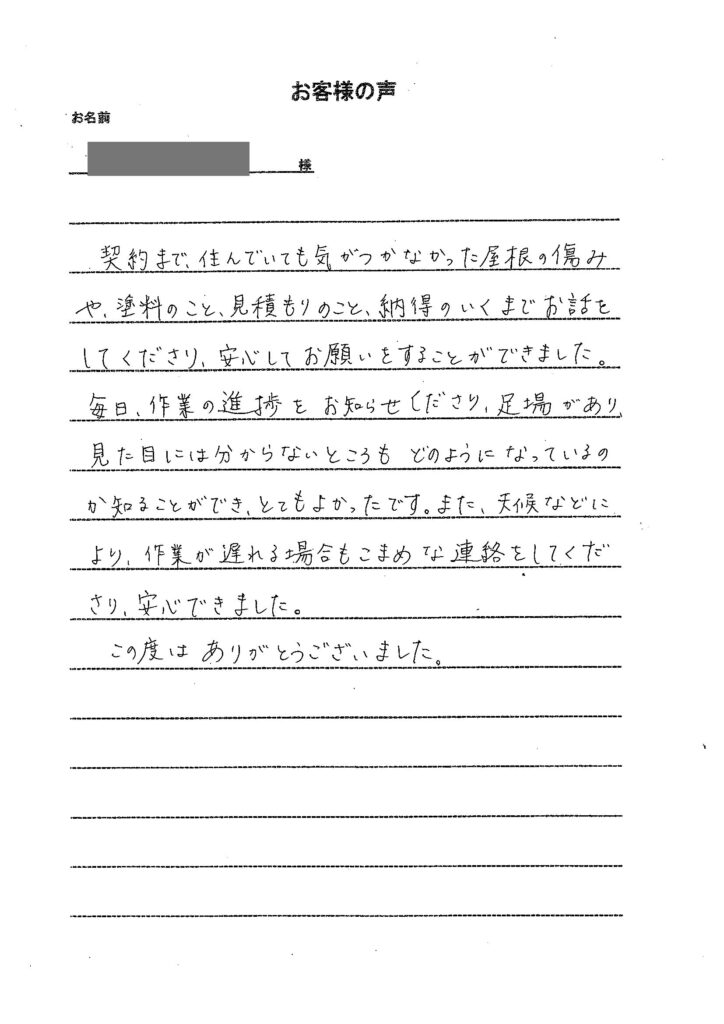 お客様の声
お名前
様
契約まで、住んでいても気がつかなかった屋根の傷み
や、塗料のこと、見積もりのこと、納得のいくまでお話を
してくださり、安心してお願いをすることができました。
毎日、作業の進捗をお知らせくださり、足場があり、
見た目には分からないところもどのようになっているの
か知ることができ、とてもよかったです。また、天候などに
より、作業が遅れる場合もこまめな連絡をしてくだ
さり、安心できました。
この度はありがとうございました。